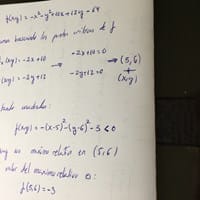 f(x,y) = -x² - y² + 10x + 12y - 64
buscando los puntos críticos de f
(x,y) = -2x + 10
-2x + 10 = 0
→ (5,6)
(x,y) = -2y + 12
-2y + 12 = 0
(x,y)
cuadrados:
f(x,y) = -(x-5)² - (y-6)² - 3 ≤ 0
un máximo relativo en (5,6)
valor del máximo relativo es:
f(5,6) = -3